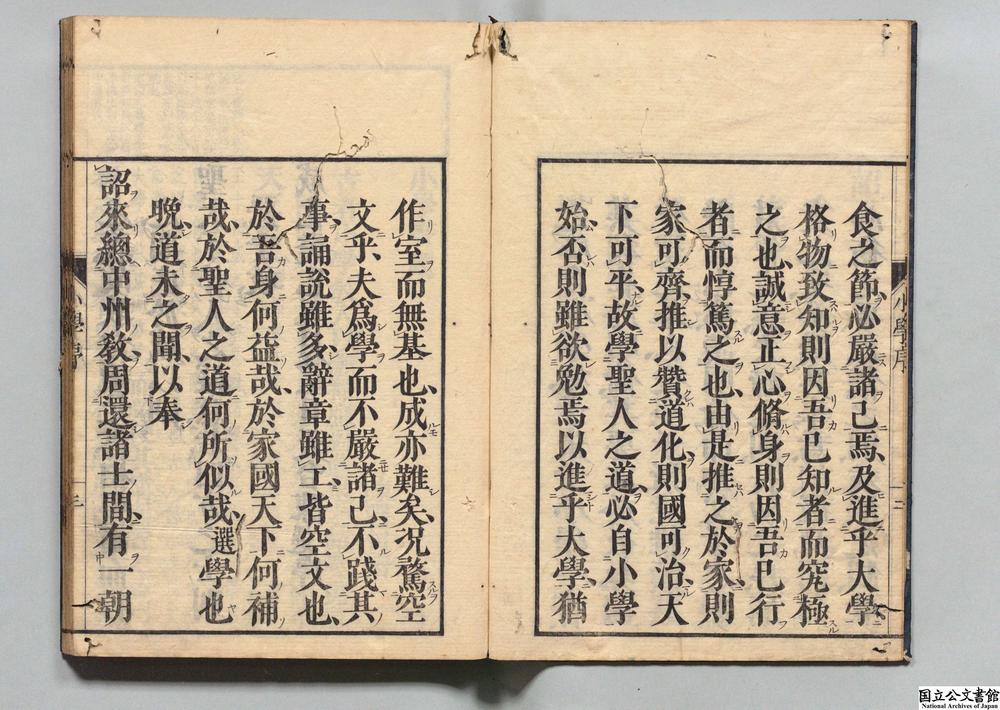 食之節必嚴諸己焉及進乎大學
格物致知則因吾已知者而究極
之也誠意正心脩身則因吾已行
者而惇篤之也由是推之於家則
家可齊推以贊道化則國可治天
下可平故學聖人之道必自小學
始否則雖欲勉焉以進乎大學猶
作室而無基也成亦難矣况騖空
文乎夫爲學而不嚴諸己不踐其
事誦說雖多辭章雖工皆空文也
於吾身何益哉於家國天下何補
哉於聖人之道何所似哉選學也
晚道未之聞以奉
詔來總中州敎周還諸士間有一朝
小學序
國立公文書館
National Archives of Japan